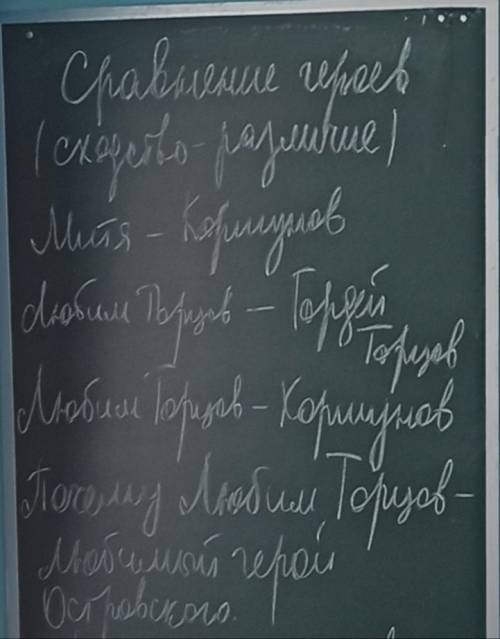 Сравнение героев
(сходство - различие)
Митя - Коршунов
Любим Торцов - Гордей
Торцов
Любим Торцов - Коршунов
Почему Любим Торцов -
любимый герой
Островского.